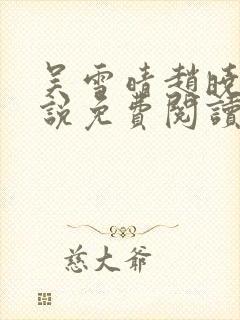 吴雪晴趙曉
說免費閱讀
慈大爺